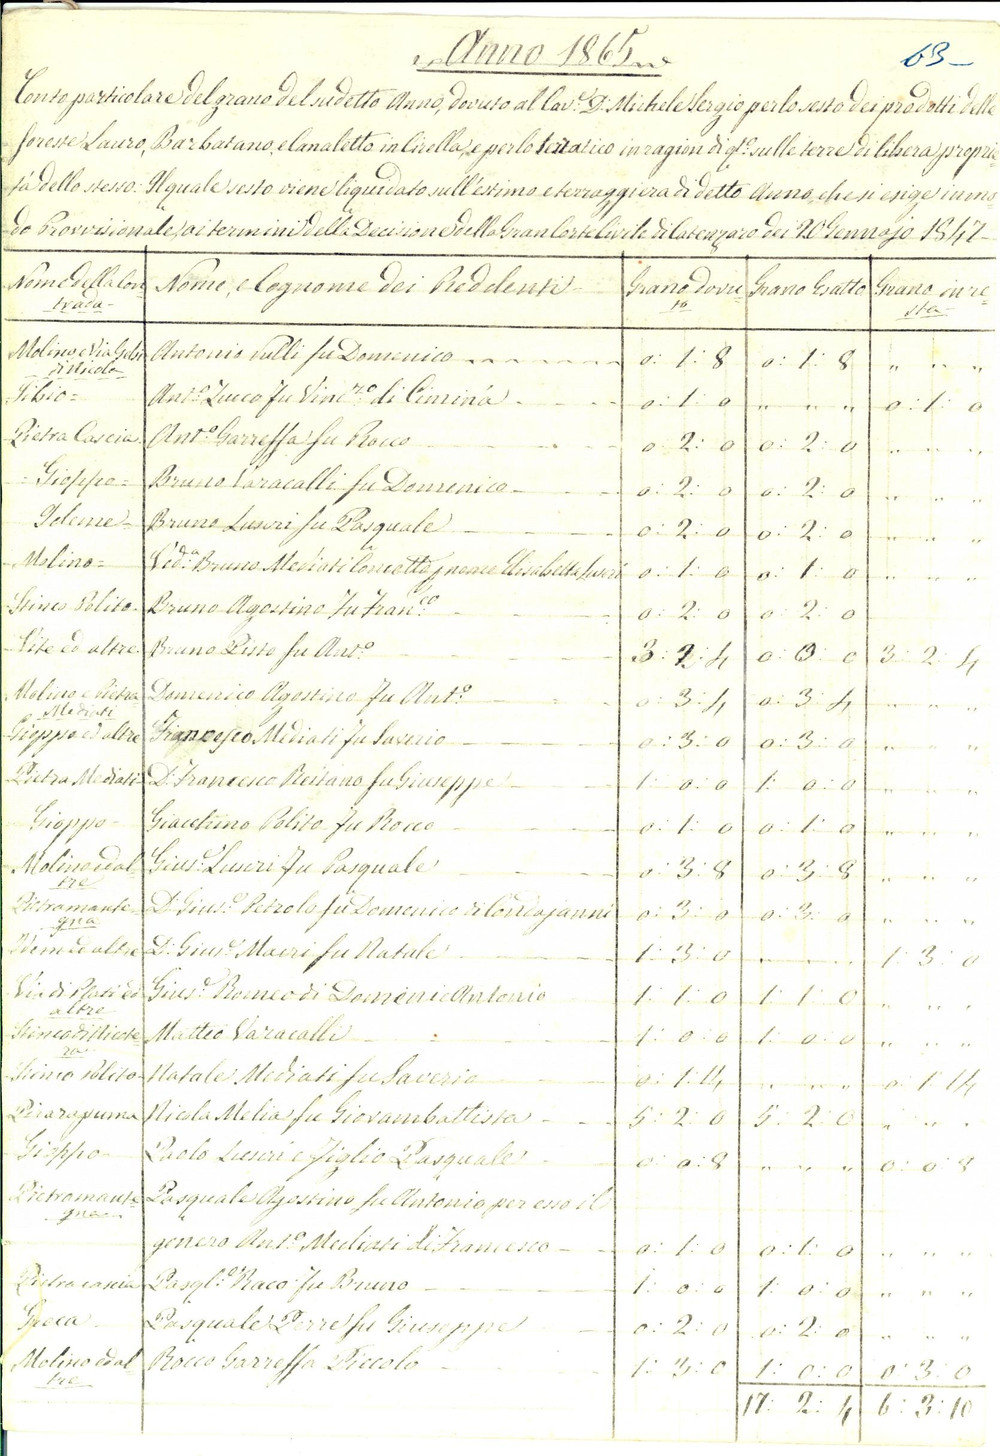 Anno 1865
63
Conto particolare del grano del sudetto Anno, dovuto al Cav.e D. Michele Sergio per lo sesto dei prodotti delle
foreste Lauro, Barbatano, e Canaletto in Cirella, e per lo in ragion di q.to sulle terre di libera proprie-
tà dello stesso. Il quale sesto viene liquidato sull'estimo e terraggiera di detto Anno, che si esige in mo-
do Provvisionale, ai termini della Decisione della Gran Corte Civile di Catanzaro dei 20 Gennajo 1847
Nome della Con- Nome, e Cognome dei Reddenti Grano dovu- Grano Esatto Grano in re-
trada to sta
Molino e Via Antonio fu Domenico 0: 1: 8 0: 1: 8 " " "
di Nicola
Tibio= Ant.o Zucco fu Vinc.zo di Ciminà 0: 1: 0 " " " 0: 1: 0
Pietra Cascia Ant.o Garreffa fu Rocco 0: 2: 0 0: 2: 0 " " "
Gioppo= Bruno Varacalli fu Domenico 0: 2: 0 0: 2: 0 " " "
Bruno Luscri fu Pasquale 0: 2: 0 0: 2: 0 " " "
Molino= Ved.a Bruno Mediati Elisabetta Luscri 0: 1: 0 0: 1: 0 " " "
Polito Bruno Agostino fu Fran.co 0: 2: 0 0: 2: 0
Vite ed altre Bruno Pisto fu Ant.o 3: 2: 4 0: 0: 0 3: 2: 4
Molino e Pietra Domenico Agostino fu Ant.o 0: 3: 4 0: 3: 4 " " "
Mediati
Gioppo ed altre Francesco Mediati fu Saverio 0: 3: 0 0: 3: 0 " " "
Pietra Mediati D. Francesco Reitano fu Giuseppe 1: 0: 0 1: 0: 0 " " "
Gioppo Polito fu Rocco 0: 1: 0 0: 1: 0 " " "
Molino ed al- Gius.e Luscri fu Pasquale 0: 3: 8 0: 3: 8 " " "
tre
Pietromante- D. Gius.e Petrolo fu Domenico di Condojanni 0: 3: 0 0: 3: 0 " " "
gna
ed altre D. Gius.e Macri fu Natale 1: 3: 0 " " " 1: 3: 0
Via di Plati ed Gius.e Romeo di Domenic'Antonio 1: 1: 0 1: 1: 0 " " "
altre
Matteo Varacalli 1: 0: 0 1: 0: 0 " " "
Polito Natale Mediati fu Saverio 0: 1: 14 " " " 0: 1: 14
Nicola Melia fu Giovambattista 5: 2: 0 5: 2: 0 " " "
Gioppo Paolo Luscri e figlio Pasquale 0: 0: 8 " " " 0: 0: 8
Pietromante- Pasquale Agostino fu Antonio, per esso il
gna
genero Ant.o Mediati di Francesco 0: 1: 0 0: 1: 0 " " "
Pietra cascia Pasql.e Raco fu Bruno 1: 0: 0 1: 0: 0 " " "
Greca Pasquale Perre fu Giuseppe 0: 2: 0 0: 2: 0 " " "
Molino ed al- Rocco Garreffa Piccolo 1: 3: 0 1: 0: 0 0: 3: 0
tre
17: 2: 4 6: 3: 10